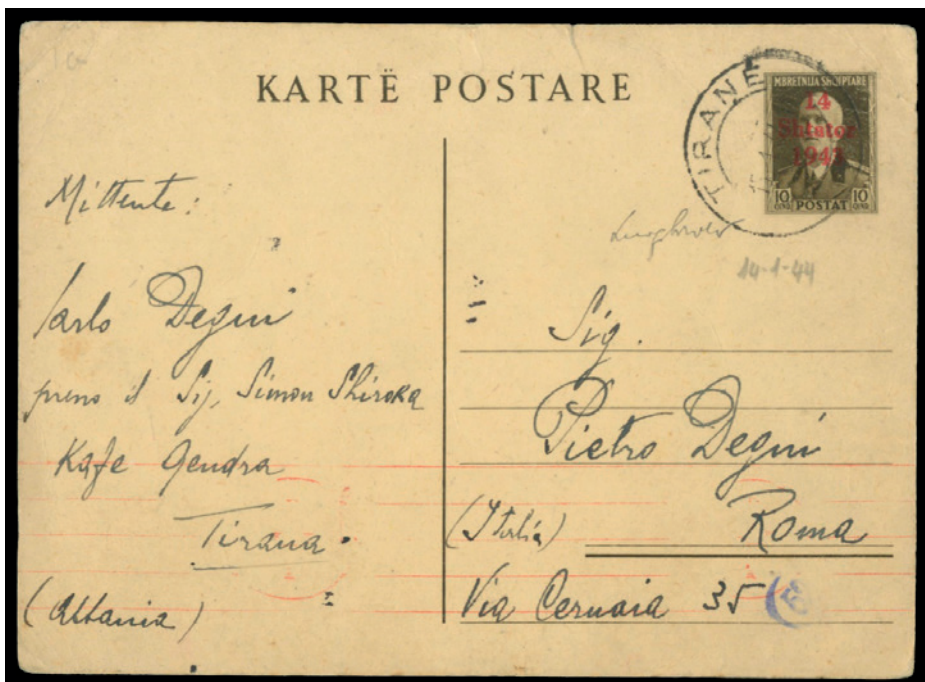 KARTË POSTARE
TIRANE
MBRETNIJA SHQIPTARE
14
Shtator
1943
10 POSTAT 10
14-1-44
Mittente:
Carlo Degni
presso il Sig. Simon Shiroka
Kafe Qendra
Tirana.
(Albania)
Sig.
Pietro Degni
(Italia) Roma
Via Cernaia 35